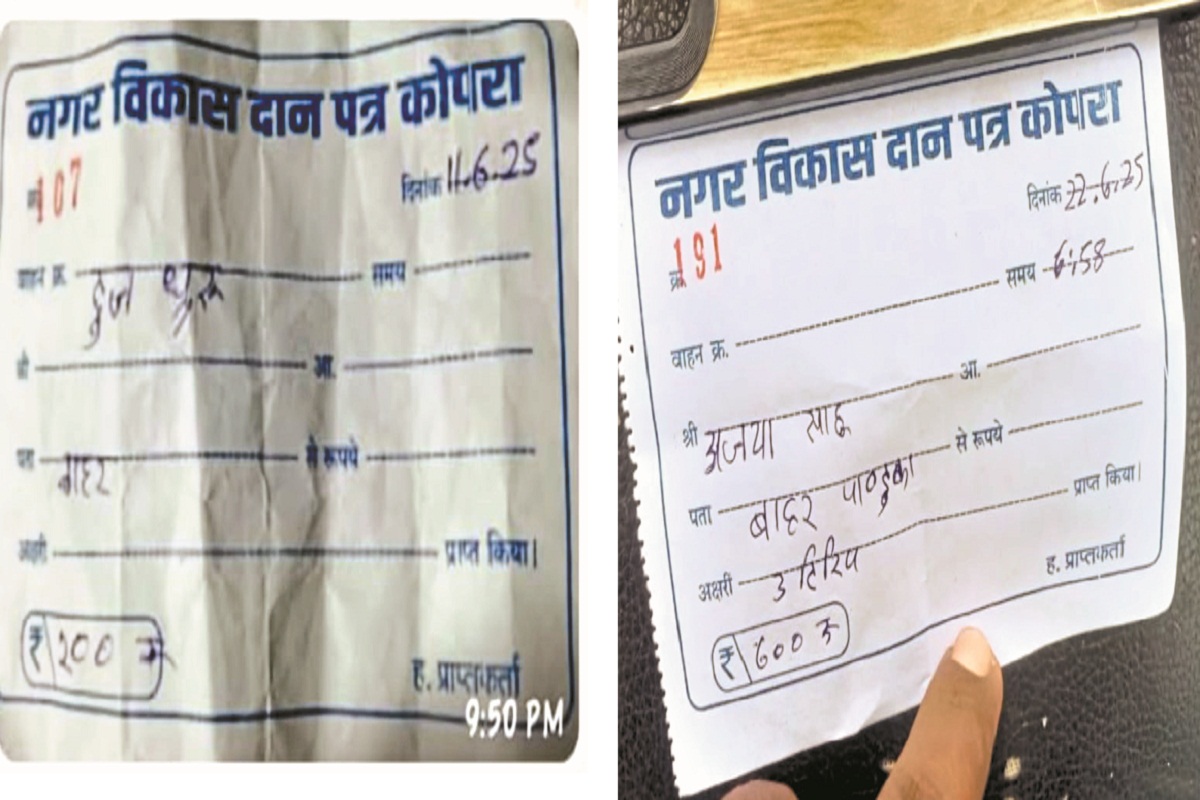 नगर विकास दान पत्र कोपरा
क्र. 107
दिनांक 11.6.25
वाहन क्र. समय
श्री आ.
पता बाहर से रूपये
अक्षरी प्राप्त किया।
₹ २०० रु
ह. प्राप्तकर्ता
9:50 PM
नगर विकास दान पत्र कोपरा
क्र. 191
दिनांक 22.6.25
वाहन क्र. समय 6:58
श्री अजया साहू आ.
पता बाहर पाण्डुका से रूपये
अक्षरी 3 ट्रिप प्राप्त किया।
₹ ६०० रु
ह. प्राप्तकर्ता